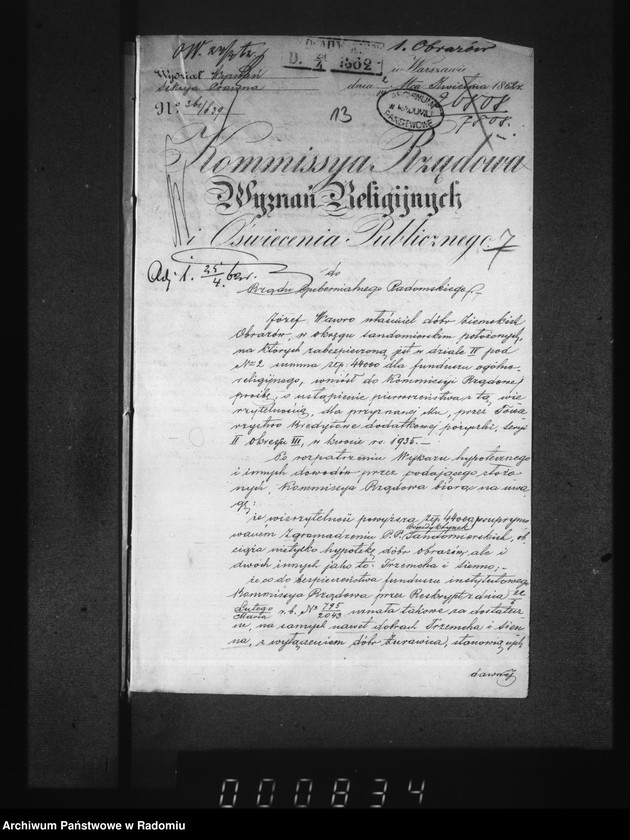 1. Obrazów
D. 23/4 1862
Wydział Wyznań w Warszawie
Sekcya dnia Kwietnia 1862 r.
ARCHIWUM
W RADOMIU
PAŃSTWOWE
26808
7808.
No
13
Kommissya Rządowa
Wyznań Religijnych
i Oświecenia Publicznego
7
do
Adj 1. 25/4 62 r.
Rządu Gubernialnego Radomskiego
Józef Wawro właściciel dóbr Ziemskich
Obrazów, w okręgu Sandomierskim położonych,
na których zabezpieczoną jest w dziale IV pod
No 2 summa złp. 44000 dla funduszu ogólno
religijnego, wniósł do Kommissyi Rządowej
prośbę, o ustąpienie pierwszeństwa z tą wie
rzytelnością, dla przyznanej Mu, przez Towa
rzystwo Kredytowe dodatkowej pożyczki, Seryi
II Okresu III, w kwocie rs. 1935.—
Po rozpatrzeniu Wykazu hypotecznego
i innych dowodów przez podającego złożo
nych, Kommissya Rządowa biorąc na uwa
gę:
że wierzytelność powyższa złp. 44000
Zgromadzeniu P.P. Benedyktynek Sandomierskich, ob
ciąża nietylko hypotekę dóbr Obrazów, ale i
dwóch innych jako to: Trzemcha i Sienno;—
że co do bezpieczeństwa funduszu instytutowego
Kommissya Rządowa przez Reskrypt z dnia
Lutego
Marca r. b. No 795/2043 uznała takowe za dostatecz
ne, na samych nawet dobrach Trzemcha i Sien
na, z wyłączeniem dóbr Żurawica,
dawnej
000834
Archiwum Państwowe w Radomiu